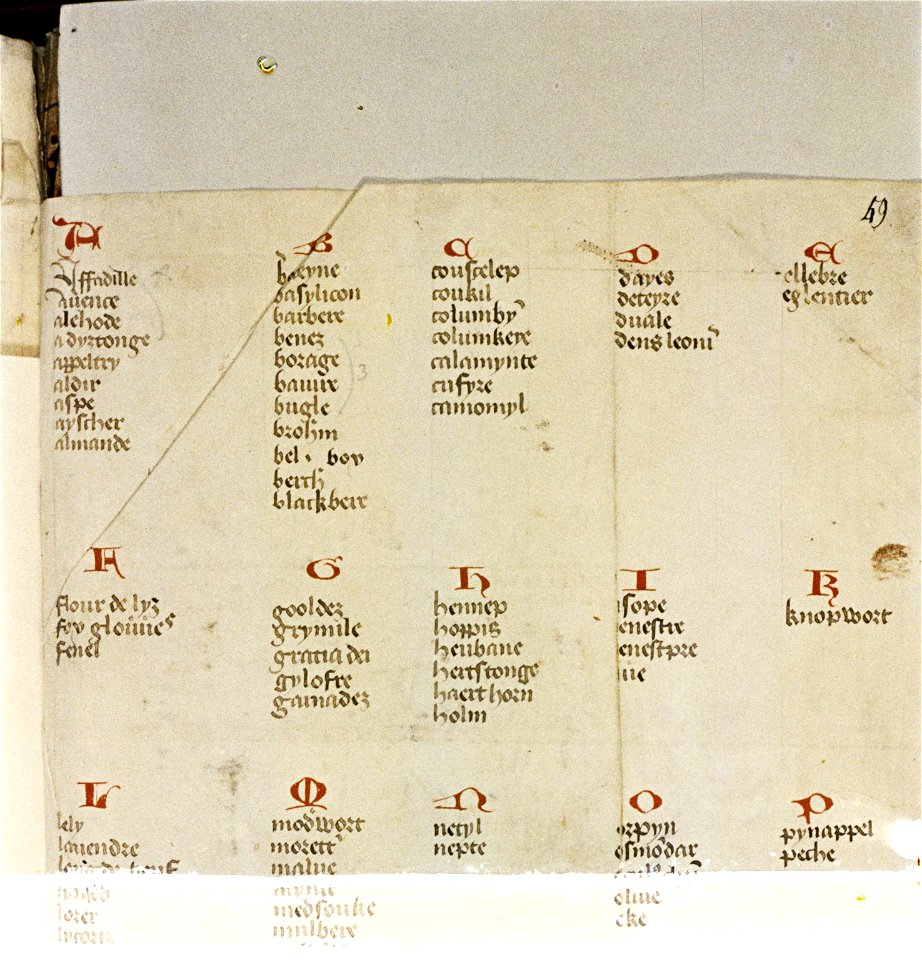 49
A
Affadille
Auence
alehode
adyrtonge
appeltry
aldir
aspe
ayscher
almande
B
basylicon
barbere
benez
borage
bugle
brohm
bel . boy
berch
blackbere
3
C
couscelep
coukil
columby
columkere
calamynte
cufyre
camomyl
D
dayes
deteyre
duale
dens leonī
E
ellebre
eglentier
F
flour de lyz
fox glouue
fenel
G
gooldez
grymile
gratia dei
gylofre
garnadez
H
hennep
hoppis
heubane
hertstonge
haert horn
holm
I
isope
enestre
enestpre
iue
K
knopwort
L
lely
lauendre
lorer
lycoris
M
modwort
morett
malue
medsouke
mulbere
N
netyl
nepte
O
orpyn
osmōdar
oliue
eke
P
pynappel
peche